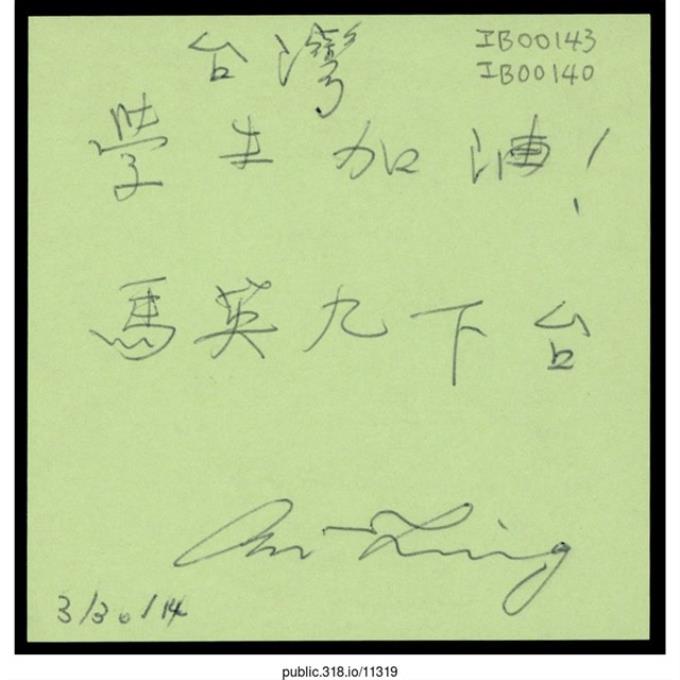 台灣
IB00143
IB00140
學生加油!
馬英九下台
Ai-Ling
3/30/14
public.318.io/11319